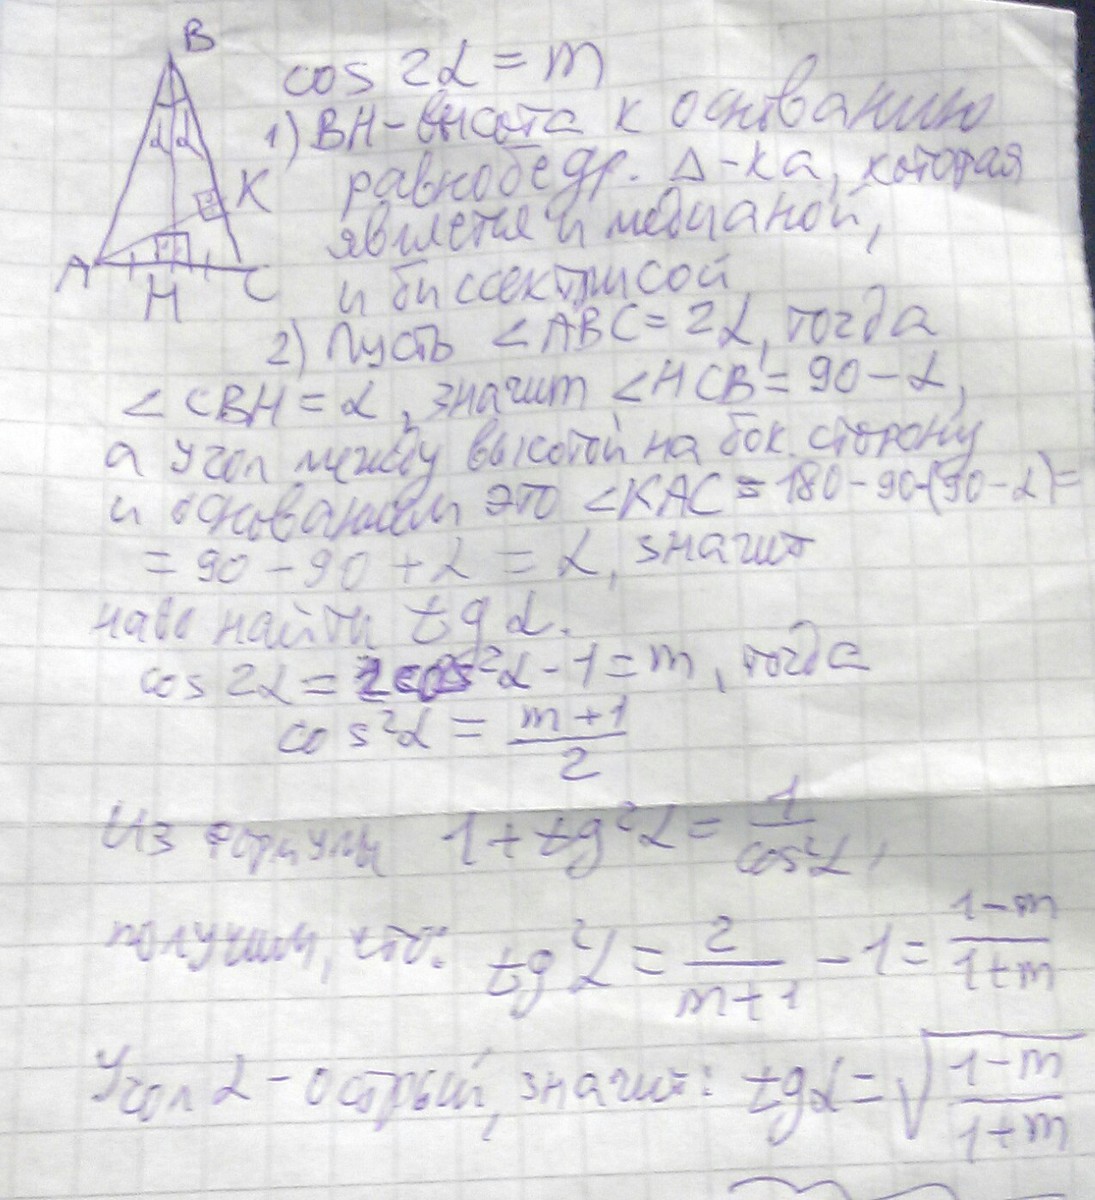 B
cos 2α = m
1) BH - высота к основанию
α α
K
равнобедр. Δ-ка, которая
является и медианой,
A
H
C
и биссектрисой
2) Пусть ∠ABC = 2α, тогда
∠CBH = α, значит ∠HCB = 90 - α,
а угол между высотой на бок. сторону
и основанием это ∠KAC = 180 - 90 - (90 - α) =
= 90 - 90 + α = α, значит
надо найти tg α.
cos 2α = 2cos²α - 1 = m, тогда
cos²α = (m + 1)/2
Из формулы 1 + tg²α = 1/cos²α,
получим, что: tg²α = 2/(m + 1) - 1 = (1 - m)/(1 + m)
Угол α - острый, значит: tgα = √((1 - m)/(1 + m))